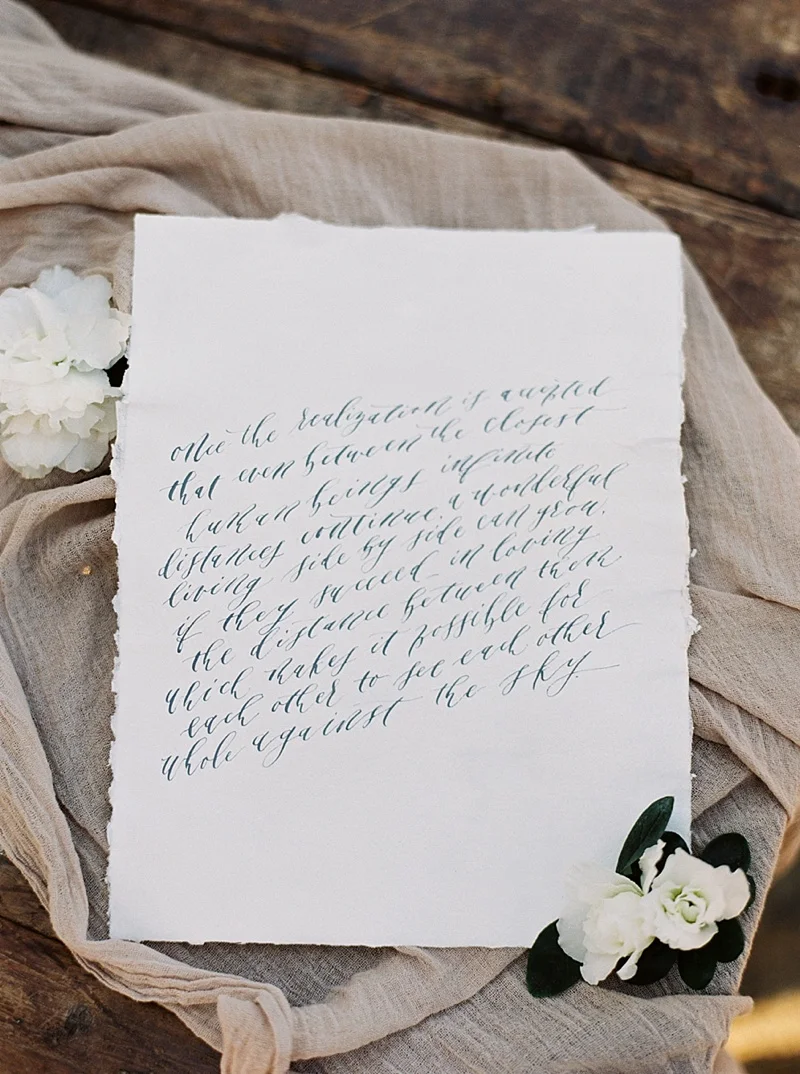 once the realization is accepted
that even between the closest
human beings infinite
distances continue, a wonderful
living side by side can grow,
if they succeed in loving
the distance between them
which makes it possible for
each other to see each other
whole against the sky.